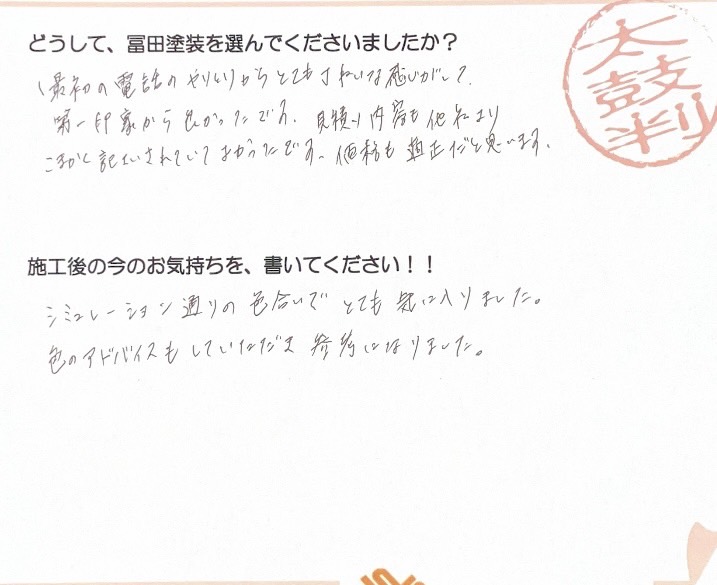 どうして、冨田塗装を選んでくださいましたか？
太鼓判
最初の電話のやりとりからとてもきれいな感じがして、
第一印象から良かったです。見積り内容も他社より
こまかく記入されていてよかったです。価格も適正だと思います。
施工後の今のお気持ちを、書いてください！！
シミュレーション通りの色合いでとても気に入りました。
色のアドバイスもしていただき参考になりました。